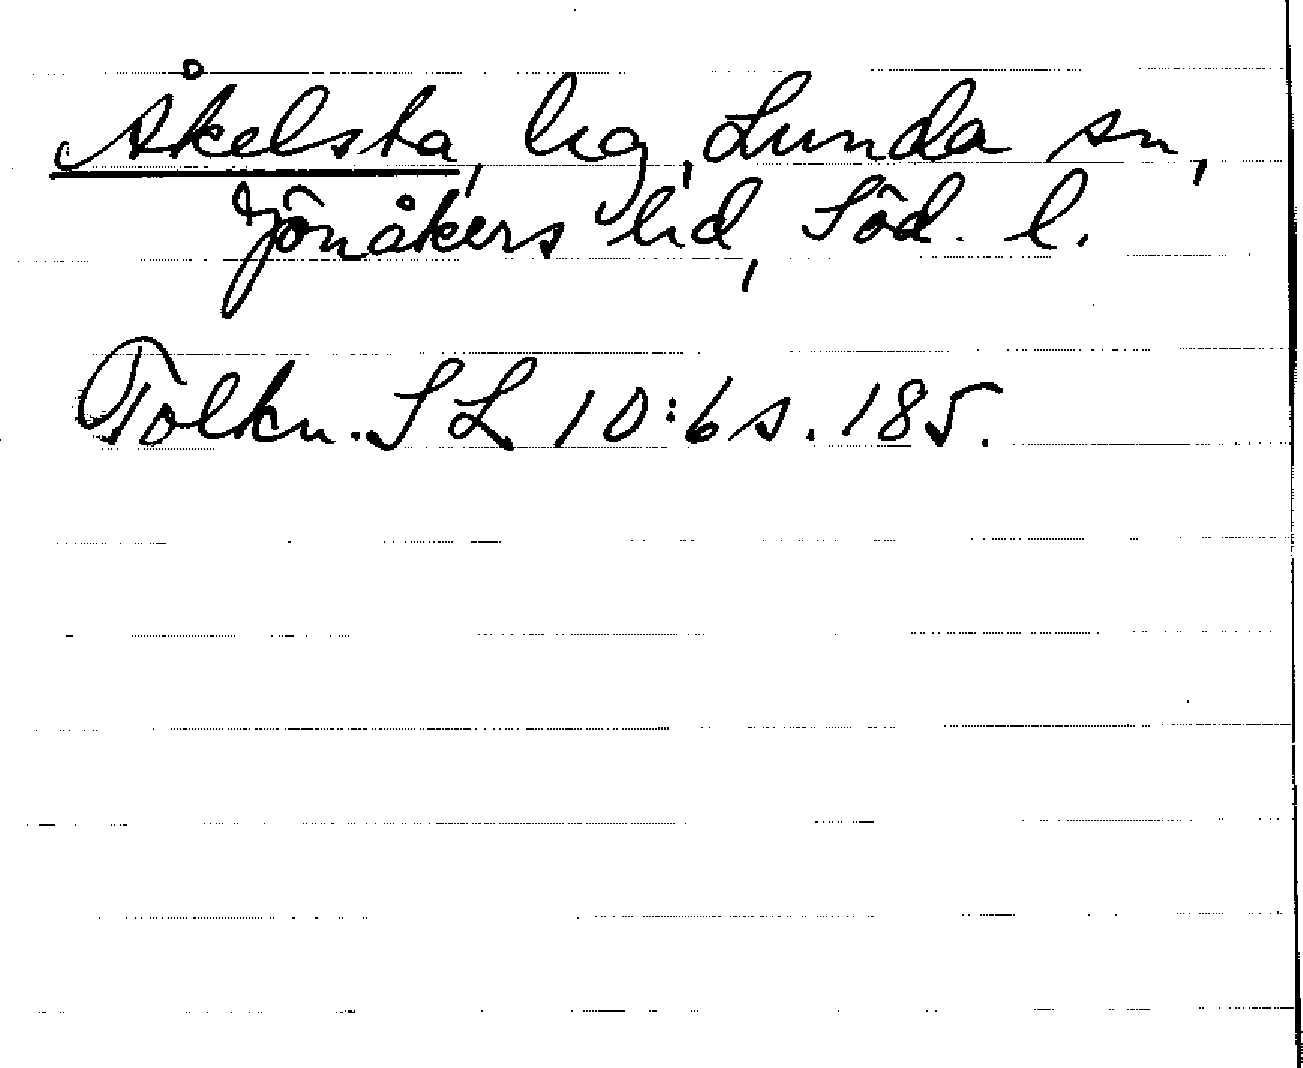 Åkelsta, hg, Lunda sn,
Jönåkers hd, Söd. l.
Tolkn. SL 10:6 s. 185.